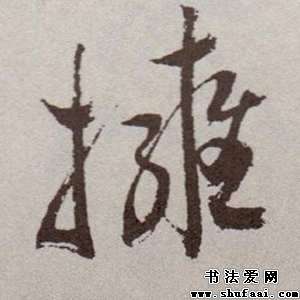 擁
书法爱网
www.shufaai.com